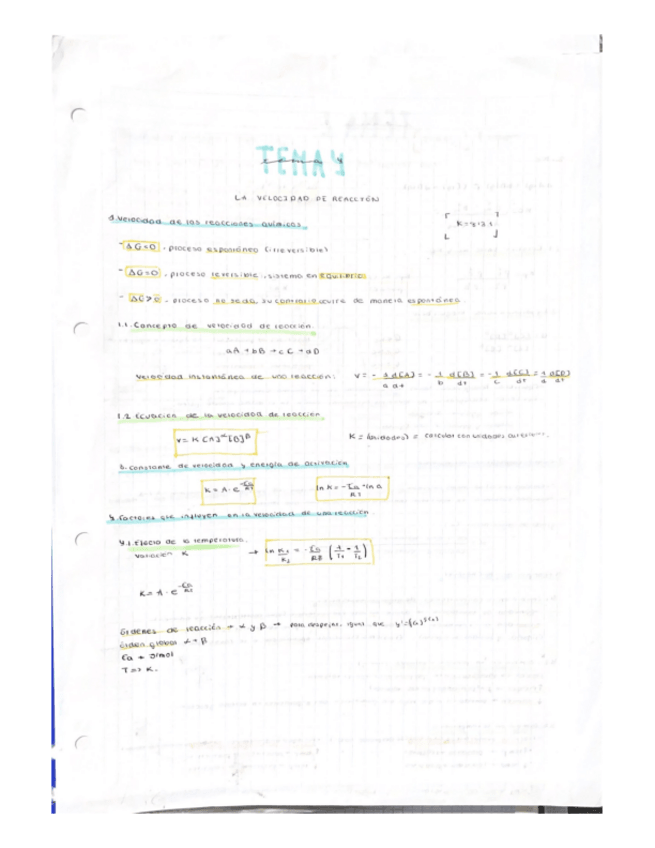 TEMA 4
LA VELOCIDAD DE REACCIÓN
1. Velocidad de las reacciones químicas.
- ΔG<0. proceso espontáneo (irreversible)
- ΔG=0. proceso reversible, sistema en equilibrio.
- ΔG>0. proceso no se da, su contrario ocurre de manera espontánea
1.1. Concepto de velocidad de reacción.
aA + bB → cC + dD
Velocidad instantánea de una reacción:
1.2. Ecuación de la velocidad de reacción.
v = K [A]^α [B]^β
K = (unidades) = calcular con unidades
constante de velocidad y energía de activación
K = A · e^-Ea/RT
ln K = -Ea/RT + ln A
Factores que influyen en la velocidad de una reacción.
4.1. Efecto de la temperatura.
K = A · e
órdenes de reacción → α y β → para despejar, igual que
órden global α + β
Ea → J/mol
T => K.